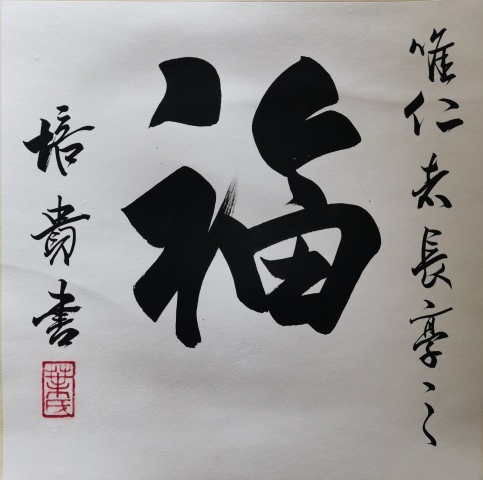 唯仁者長享之
福
培貴書
葉氏